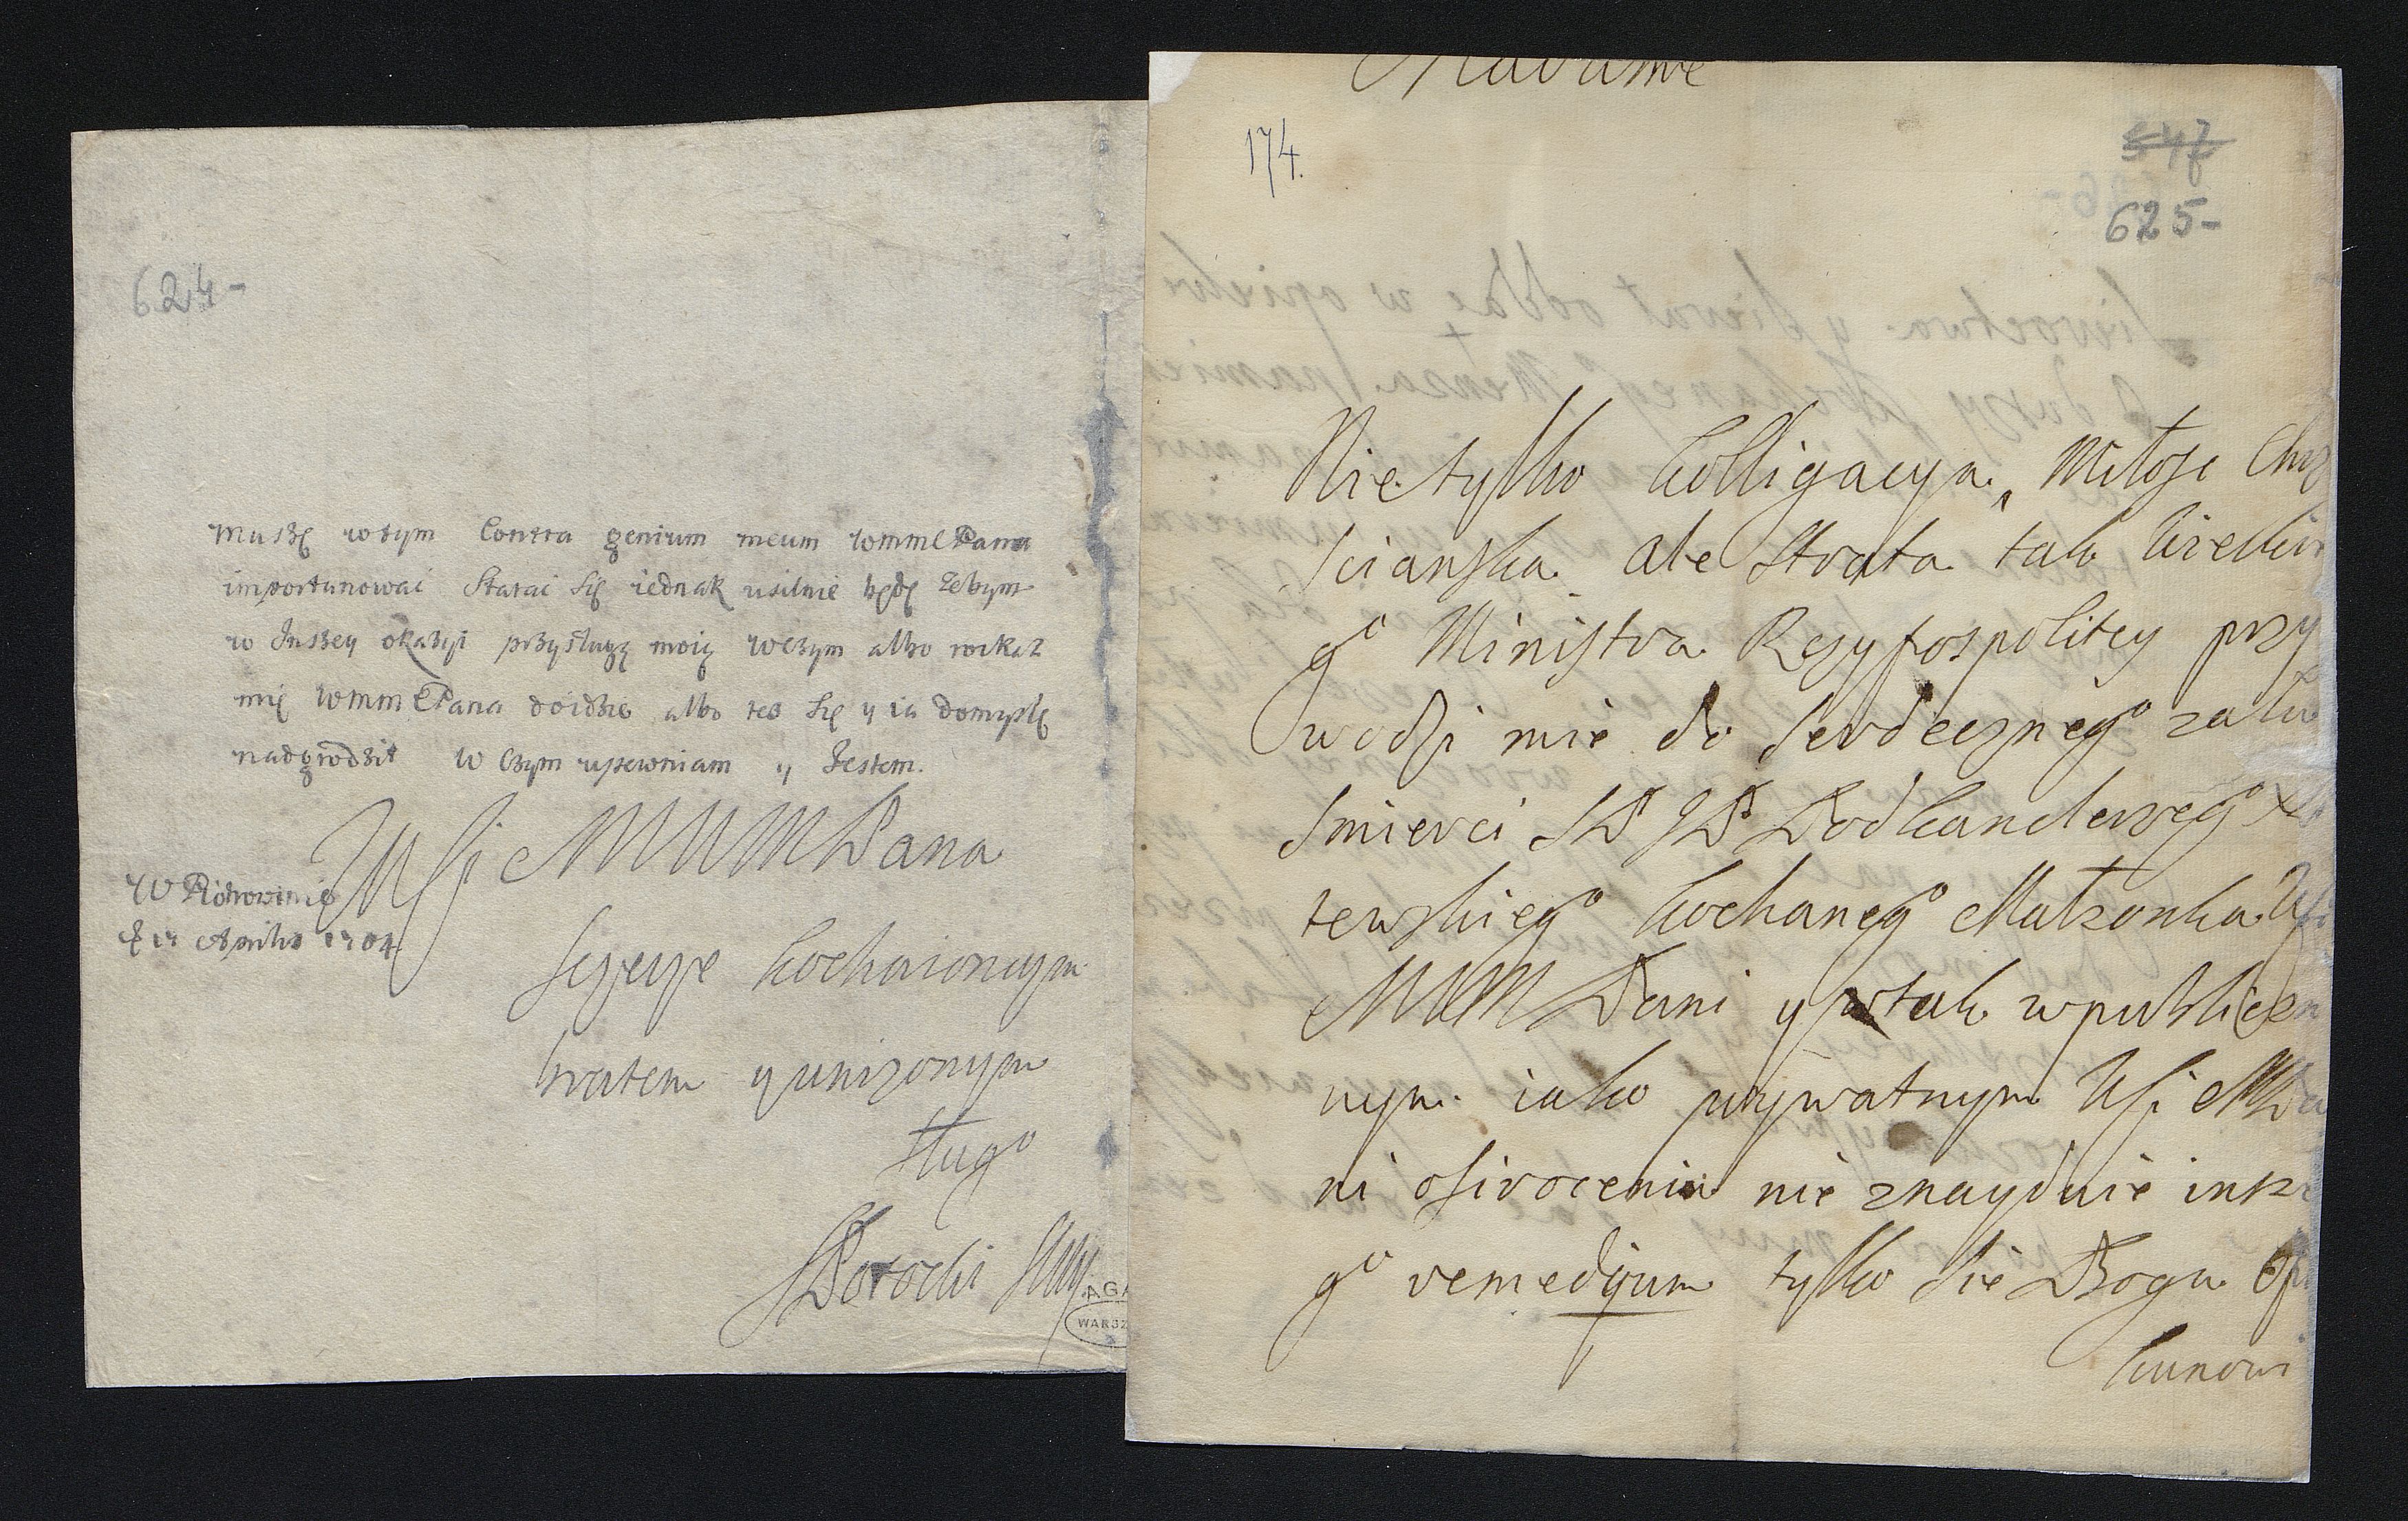 624-
Muszę wtym Contra genium meum WMMPana
importunowai Starai się iednak usilnie będę zebym
w Inszey okazyi przysługę moię wczym albo
mię WMMPana doidzie albo tes się y ia domyslę
nadgrodzit w czym upewniam y Jestem.
MWMPana
W
d 17 Aprilis 1704
szczyrze kochaionczym
bratem y unizonym
sługo
Potocki
AGA
WARSZ
Madame
174.
547
625-
Nie tylko kolligacya, Miłosc Chrz
scianska ale strata tak wielkie
go Ministra Rzyfospolitey przy
wodzi mie do serdecznego zalu
smierci JP JP Podkanclerzego
tewskiego kochanego Małzonka
MMM Pani y wtak wpublicz
nym iako prywatnym
ni osirocenia nie znayduie insze
go remedium tylko sie Bogu Opi
kunowi